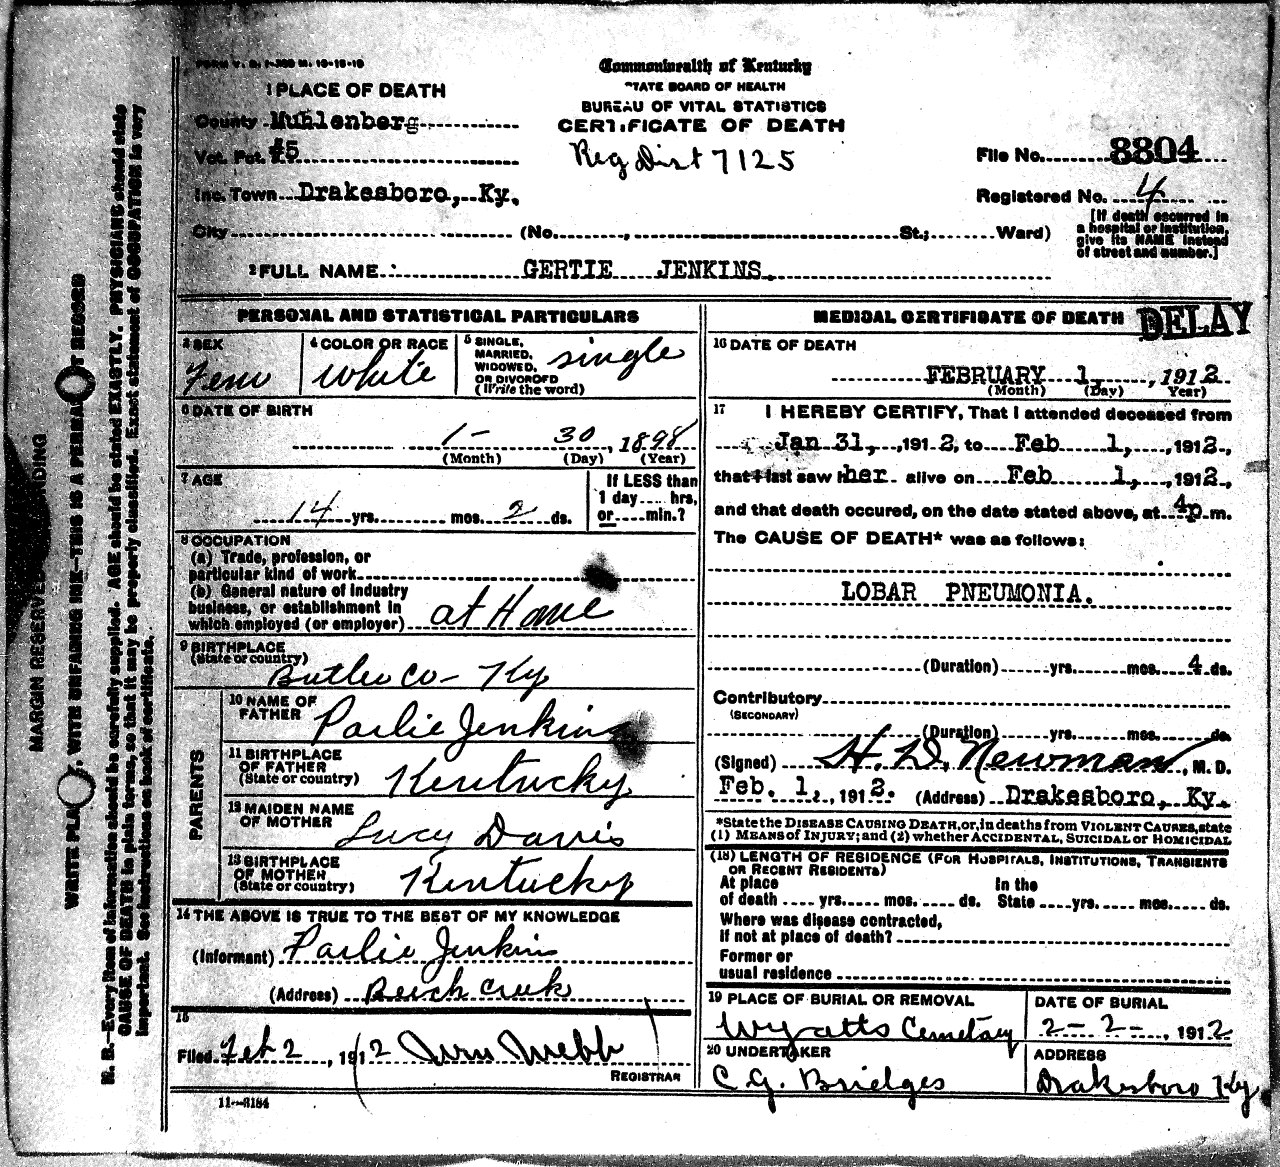 FORM V. S. 1-
Commonwealth of Kentucky
STATE BOARD OF HEALTH
BUREAU OF VITAL STATISTICS
CERTIFICATE OF DEATH
Reg Dist 7125
1 PLACE OF DEATH
County Muhlenberg
Vot. Pct. #5
Inc. Town Drakesboro, Ky.
City (No. , St.; Ward)
File No. 8804
Registered No. 4
[If death occurred in
a hospital or institution,
give its NAME instead
of street and number.]
2 FULL NAME GERTIE JENKINS.
PERSONAL AND STATISTICAL PARTICULARS
3 SEX
Fem
4 COLOR OR RACE
White
5 SINGLE,
MARRIED,
WIDOWED,
OR DIVORCED
(Write the word)
single
6 DATE OF BIRTH
1- 30 , 1898
(Month) (Day) (Year)
7 AGE
14 yrs. mos. 2 ds.
If LESS than
1 day hrs,
or min.?
8 OCCUPATION
(a) Trade, profession, or
particular kind of work
(b) General nature of industry
business, or establishment in
which employed (or employer) at Home
9 BIRTHPLACE
(State or country)
Butler Co- Ky
PARENTS
10 NAME OF
FATHER Parlie Jenkins
11 BIRTHPLACE
OF FATHER
(State or country) Kentucky
12 MAIDEN NAME
OF MOTHER Lucy Davis
13 BIRTHPLACE
OF MOTHER
(State or country) Kentucky
14 THE ABOVE IS TRUE TO THE BEST OF MY KNOWLEDGE
(Informant) Parlie Jenkins
(Address) Beech Creek
15
Filed Feb 2 , 1912 Webb
REGISTRAR
11-3184
MEDICAL CERTIFICATE OF DEATH DELAY
16 DATE OF DEATH
FEBRUARY 1, , 1912
(Month) (Day) Year)
17 I HEREBY CERTIFY, That I attended deceased from
Jan 31, , 1912, to Feb 1, , 1912,
that I last saw her alive on Feb 1, , 1912,
and that death occured, on the date stated above, at 4p m.
The CAUSE OF DEATH* was as follows:
LOBAR PNEUMONIA.
(Duration) yrs. mos. 4 ds.
Contributory
(SECONDARY)
(Duration) yrs. mos. ds.
(Signed) H. D. Newman , M. D.
Feb. 1, , 1912. (Address) Drakesboro, Ky.
*State the DISEASE CAUSING DEATH, or, in deaths from VIOLENT CAUSES, state
(1) MEANS of INJURY; and (2) whether ACCIDENTAL, SUICIDAL or HOMICIDAL
(18) LENGTH OF RESIDENCE (FOR HOSPITALS, INSTITUTIONS, TRANSIENTS
OR RECENT RESIDENTS)
At place
of death yrs. mos. ds.
In the
State yrs. mos. ds.
Where was disease contracted,
If not at place of death?
Former or
usual residence
19 PLACE OF BURIAL OR REMOVAL
Wyatts Cemetery
DATE OF BURIAL
2-2- , 1912
20 UNDERTAKER
C. G. Bridges
ADDRESS
Drakesboro Ky
MARGIN RESERVED DING
WRITE PLA , WITH UNFADING INK—THIS IS A PERMA T RECORD
N. B.—Every item of information should be carefully supplied. AGE should be stated EXACTLY. PHYSICIANS should state
CAUSE OF DEATH in plain terms, so that it may be properly classified. Exact statement of OCCUPATION is very
important. See instructions on back of certificate.